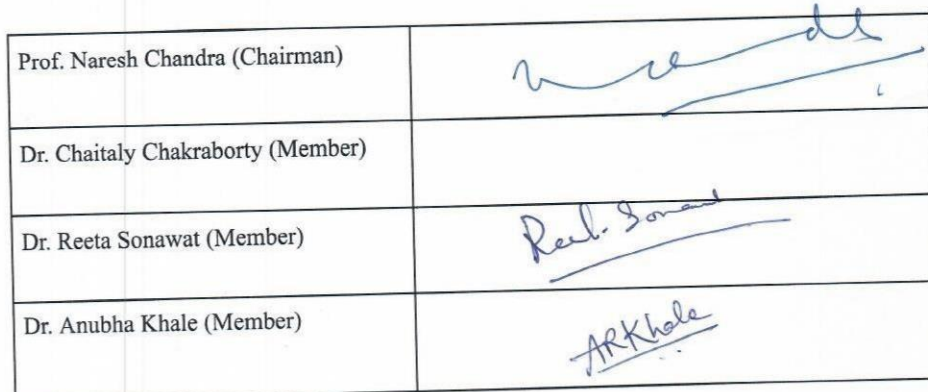 Prof. Naresh Chandra (Chairman)
Dr. Chaitaly Chakraborty (Member)
Dr. Reeta Sonawat (Member)
Dr. Anubha Khale (Member)
ARKhale